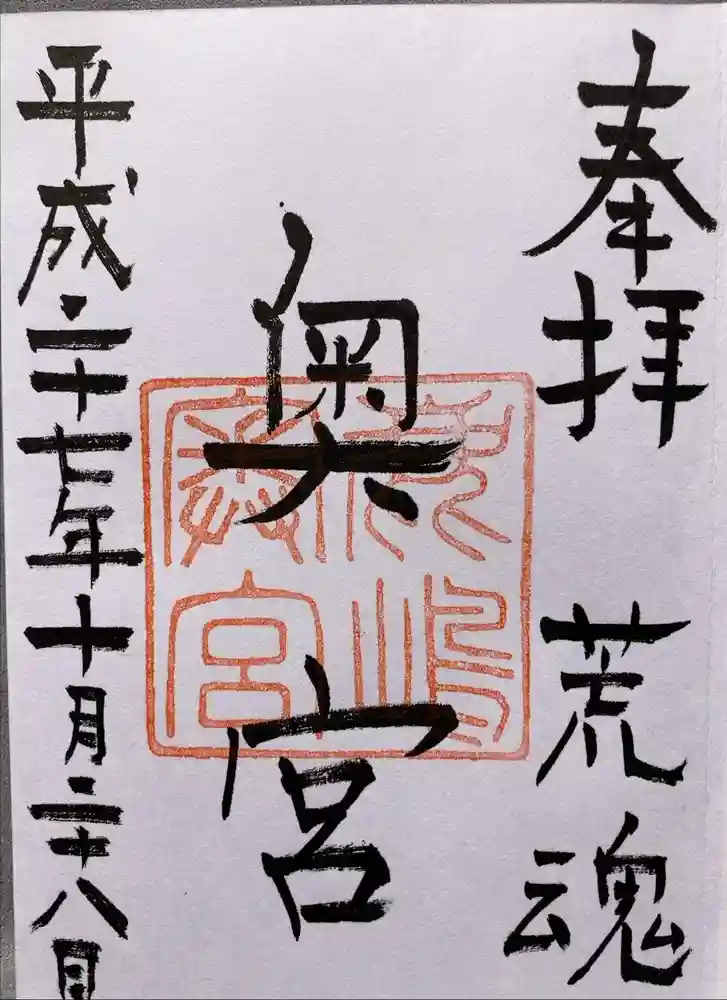 奉拝　荒魂
奥宮
平成二十七年十月二十八日
鹿嶋
奥宮